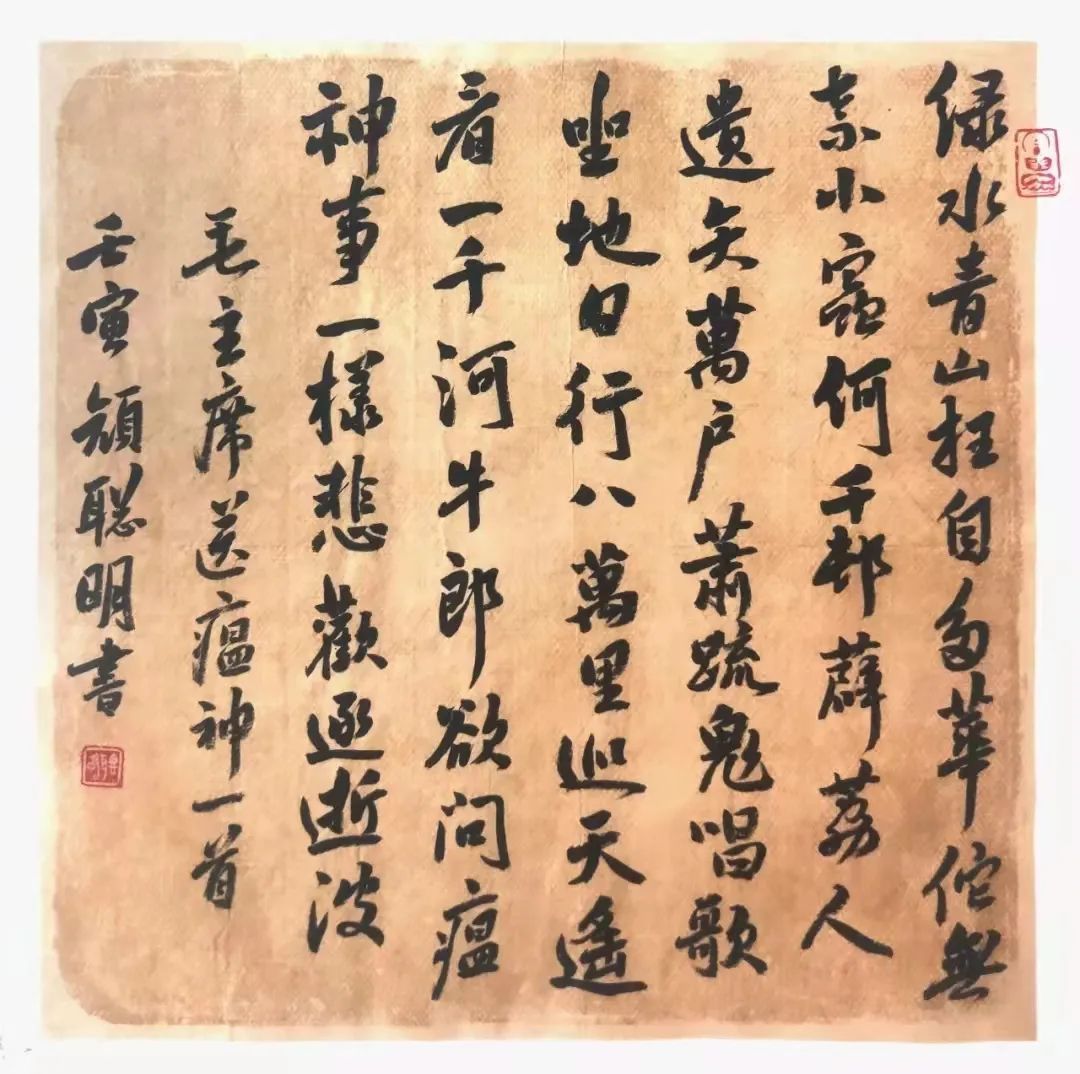 绿水青山枉自多華佗無
奈小蟲何千邨薜荔人
遗矢萬户蕭疏鬼唱歌
坐地日行八萬里巡天遥
看一千河牛郎欲问瘟
神事一樣悲歡逐逝波
毛主席送瘟神一首
壬寅聪明書